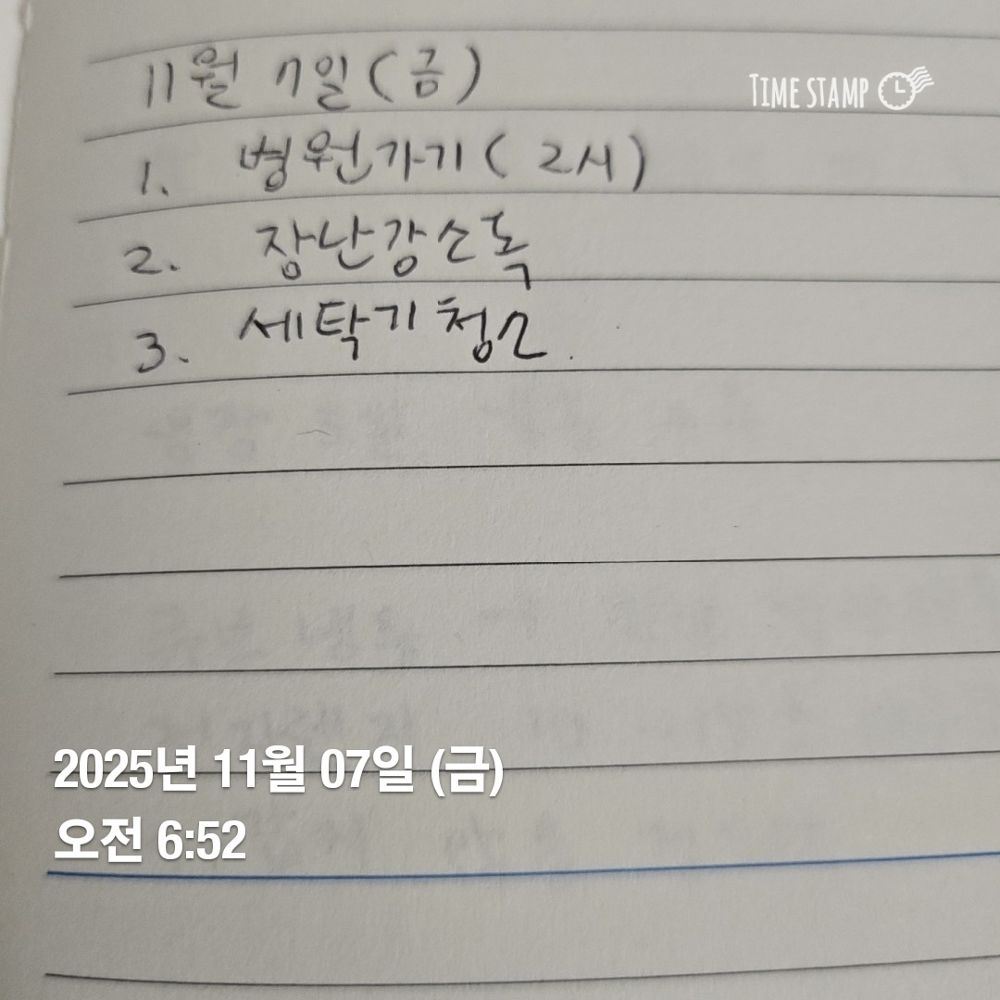 11월 7일(금)
TIME STAMP
1. 병원가기(2시)
2. 장난감소독
3. 세탁기청소.
2025년 11월 07일 (금)
오전 6:52